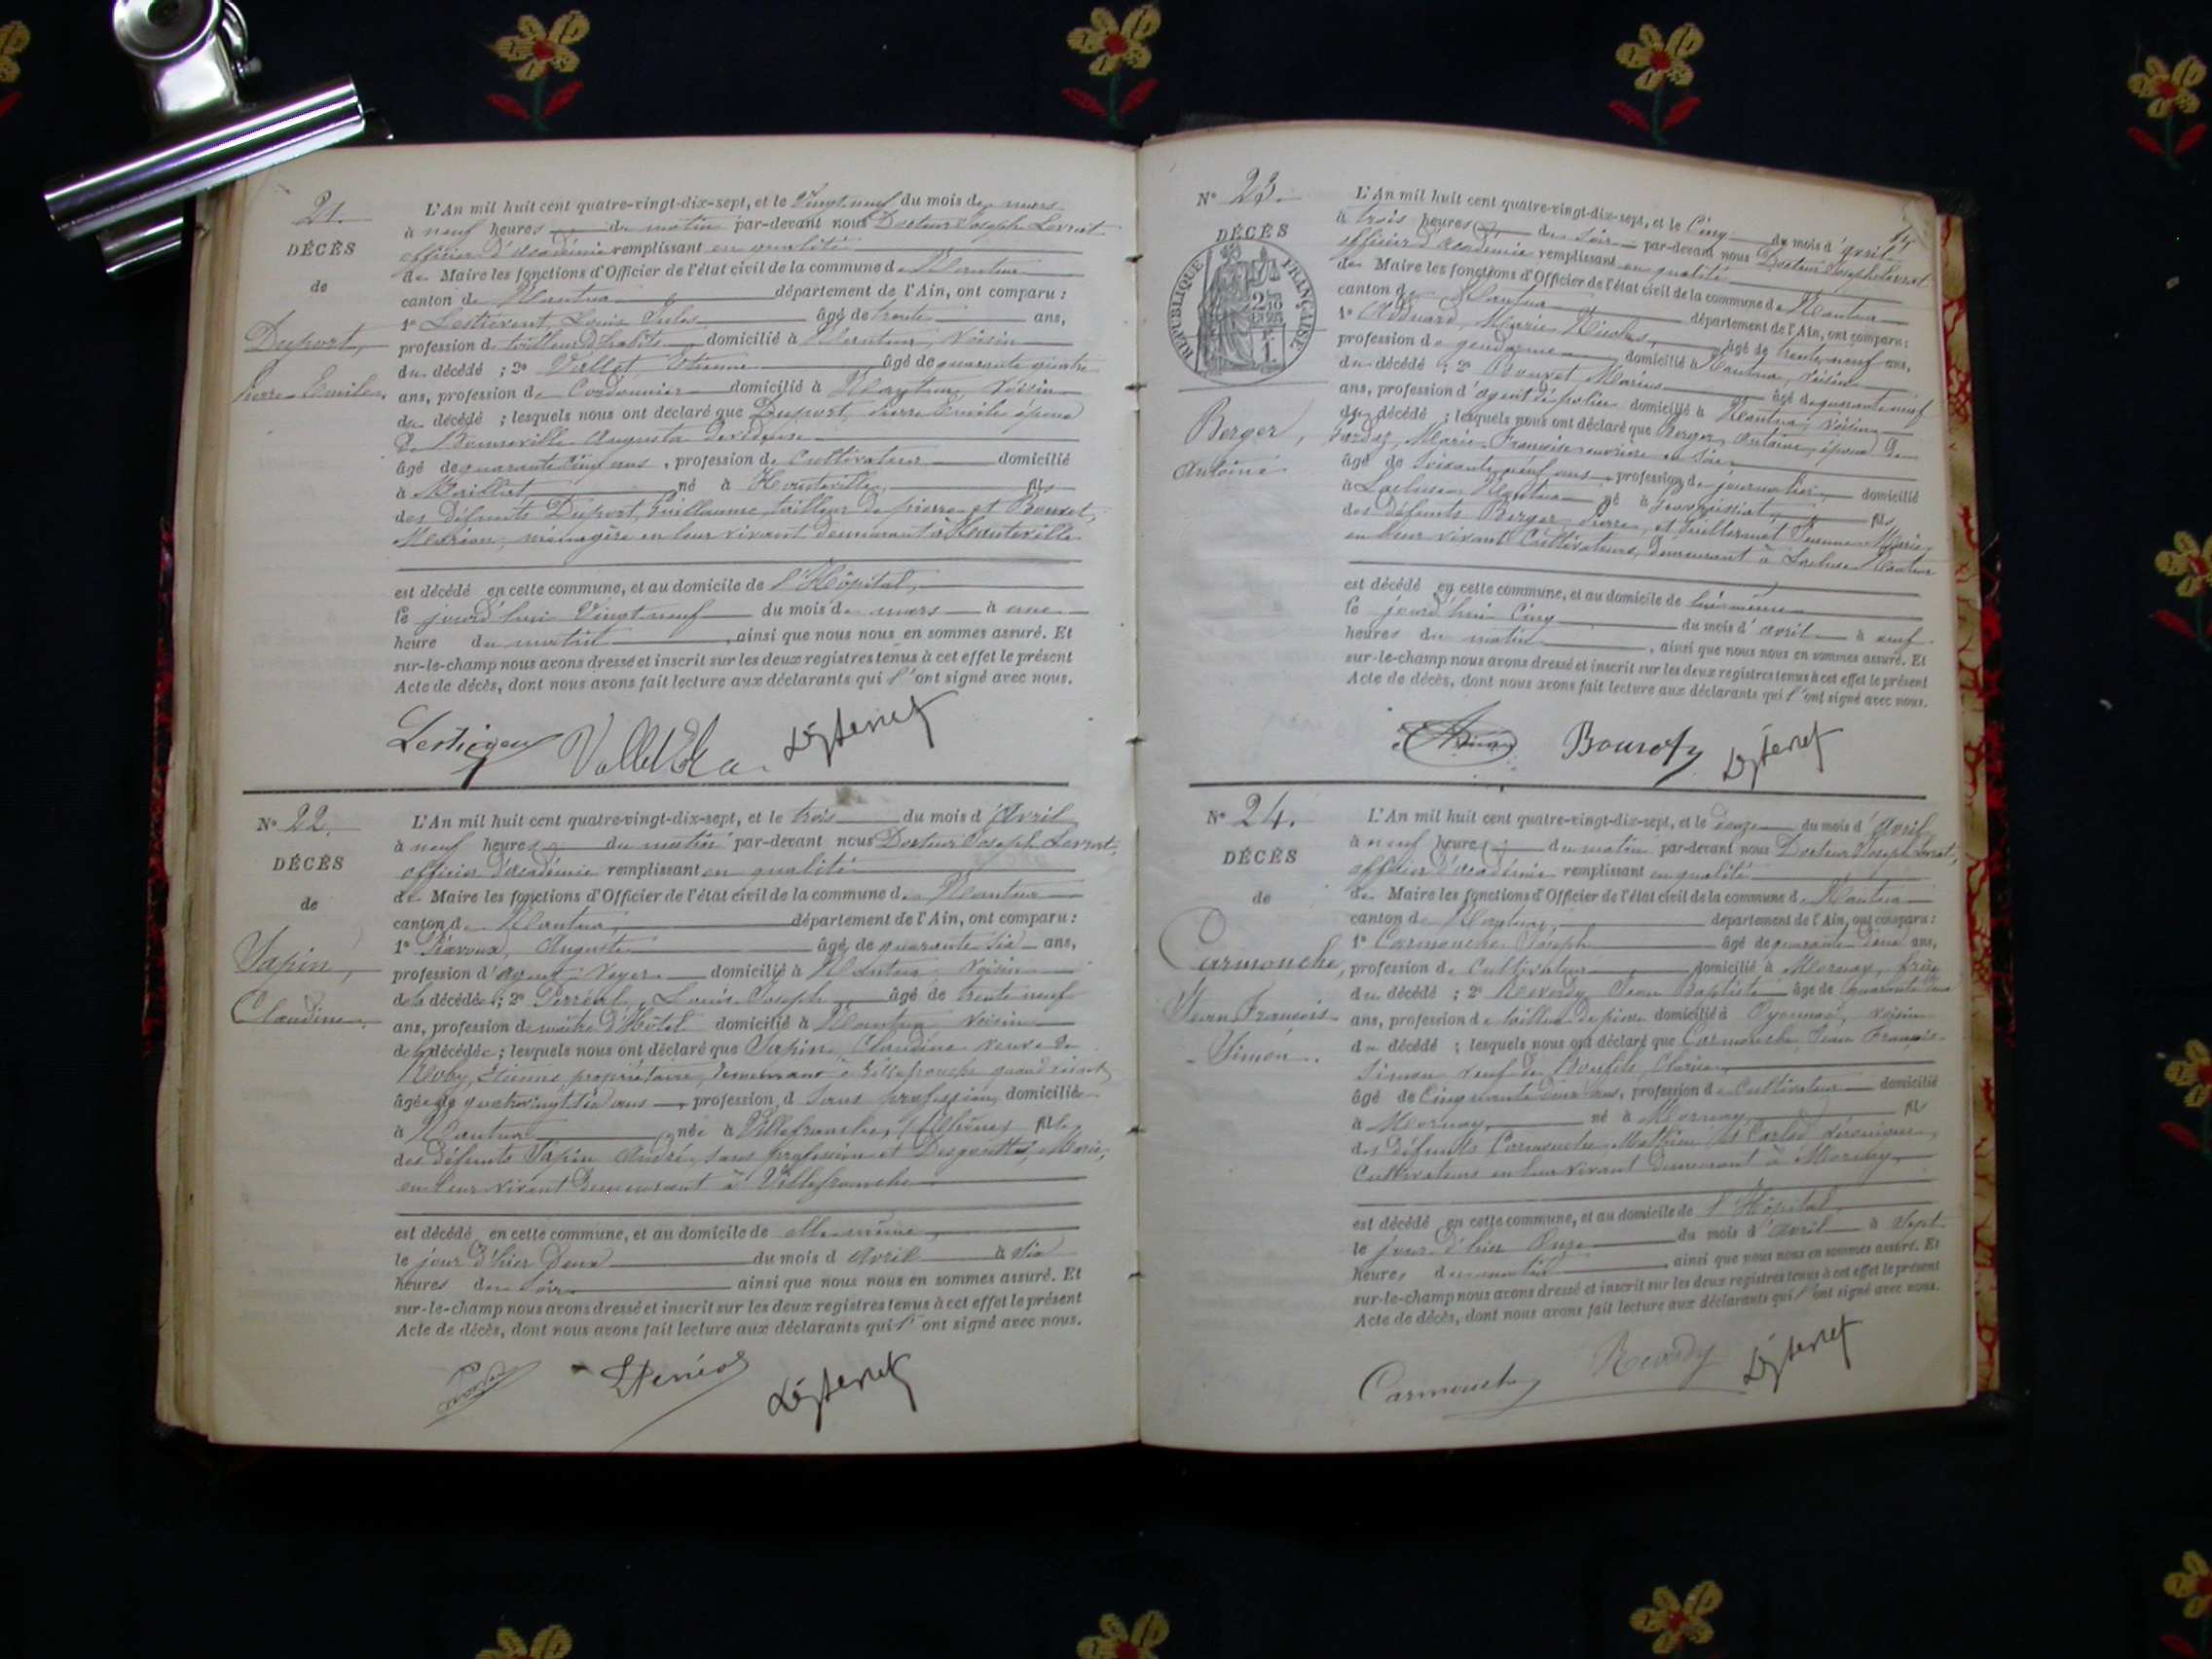 21.
DÉCÈS
de
Duport,
Pierre Emile.
L'An mil huit cent quatre-vingt-dix-sept, et le Vingt neuf du mois de mars
à neuf heures du matin par-devant nous Docteur Joseph Levrat
officier d'académie remplissant en qualité
de Maire les fonctions d'Officier de l'état civil de la commune de Nantua
canton de Nantua département de l'Ain, ont comparu :
1° Lestievent Louis Jules âgé de trente ans,
profession de tailleur d'habits domicilié à Nantua, Voisin
du décédé ; 2° Vallet Etienne âgé de quarante quatre
ans, profession de Cordonnier domicilié à Nantua, Voisin
du décédé ; lesquels nous ont déclaré que Duport, Pierre Emile époux
de Bonneville Augusta
âgé de quarante cinq ans, profession de Cultivateur domicilié
à Maillat né à Hauteville fils
des défunts Duport, Guillaume, tailleur de pierre et Bouvet,
Marion, ménagère en leur vivant demeurant à Hauteville
est décédé en cette commune, et au domicile de l'Hôpital,
le jourd'hui Vingt neuf du mois de mars à une
heure du matin, ainsi que nous nous en sommes assuré. Et
sur-le-champ nous avons dressé et inscrit sur les deux registres tenus à cet effet le présent
Acte de décès, dont nous avons fait lecture aux déclarants qui l'ont signé avec nous.
N° 22.
DÉCÈS
de
Sapin,
Claudine.
L'An mil huit cent quatre-vingt-dix-sept, et le trois du mois d'Avril
à neuf heures du matin par-devant nous Docteur Joseph Levrat,
officier d'académie remplissant en qualité
de Maire les fonctions d'Officier de l'état civil de la commune de Nantua
canton de Nantua département de l'Ain, ont comparu :
1° Auguste âgé de quarante six ans,
profession d'agent-voyer domicilié à Nantua Voisin
de la décédée ; 2° Perréal, Louis Joseph âgé de trente neuf
ans, profession de maître d'Hôtel domicilié à Nantua Voisin
de la décédée ; lesquels nous ont déclaré que Sapin, Claudine veuve de
Etienne, propriétaire, demeurant à Villefranche quand vivant
âgée de quatre vingt six ans, profession d sans profession, domiciliée
à Nantua née à Villefranche, (Rhône) fille
des défunts Sapin André, sans profession et Desgouttes, Marie,
en leur vivant demeurant à Villefranche
est décédé en cette commune, et au domicile de elle-même
le jour d'hier Deux du mois d'avril à six
heures du soir ainsi que nous nous en sommes assuré. Et
sur-le-champ nous avons dressé et inscrit sur les deux registres tenus à cet effet le présent
Acte de décès, dont nous avons fait lecture aux déclarants qui l'ont signé avec nous.
N° 23.
DÉCÈS
RÉPUBLIQUE FRANÇAISE
Berger,
Antoine
L'An mil huit cent quatre-vingt-dix-sept, et le Cinq du mois d'avril
à trois heures du soir par-devant nous Docteur Joseph Levrat
officier d'académie remplissant en qualité
de Maire les fonctions d'Officier de l'état civil de la commune de Nantua
canton de Nantua département de l'Ain, ont comparu :
1° Marie Nicolas, âgé de trente neuf ans,
profession de gendarme domicilié à Nantua, Voisin
du décédé ; 2° Bouvet Marius âgé de quarante neuf
ans, profession d'agent de police domicilié à Nantua, Voisin
du décédé ; lesquels nous ont déclaré que Berger, Antoine, époux de
Marie Françoise ouvrière en soie
âgé de soixante neuf ans, profession de journalier domicilié
à Lacluse Nantua né à fils
des défunts Berger Pierre, et Guillermet Jeanne Marie,
en leur vivant Cultivateurs, demeurant à Lacluse Nantua
est décédé en cette commune, et au domicile de lui-même
le jourd'hui Cinq du mois d'avril à neuf
heures du matin, ainsi que nous nous en sommes assuré. Et
sur-le-champ nous avons dressé et inscrit sur les deux registres tenus à cet effet le présent
Acte de décès, dont nous avons fait lecture aux déclarants qui l'ont signé avec nous.
N° 24.
DÉCÈS
de
Carmouche,
Jean François
Simon.
L'An mil huit cent quatre-vingt-dix-sept, et le douze du mois d'Avril
à neuf heures du matin par-devant nous Docteur Joseph Levrat,
officier d'académie remplissant en qualité
de Maire les fonctions d'Officier de l'état civil de la commune de Nantua
canton de Nantua, département de l'Ain, ont comparu :
1° Carmouche Joseph âgé de quarante deux ans,
profession de Cultivateur domicilié à Mornay, frère
du décédé ; 2° Reverdy Jean Baptiste âgé de quarante deux
ans, profession de tailleur de pierre domicilié à Oyonnax, voisin
du décédé ; lesquels nous ont déclaré que Carmouche, Jean François
Simon veuf de Bonfils, Claire,
âgé de Cinquante deux ans, profession de Cultivateur domicilié
à Mornay, né à Mornay, fils
des défunts Carmouche Mathieu et Carlod Véronique,
Cultivateurs en leur vivant demeurant à Mornay
est décédé en cette commune, et au domicile de l'Hôpital
le jour d'hier Onze du mois d'avril à sept
heures du matin, ainsi que nous nous en sommes assuré. Et
sur-le-champ nous avons dressé et inscrit sur les deux registres tenus à cet effet le présent
Acte de décès, dont nous avons fait lecture aux déclarants qui l'ont signé avec nous.
Carmouche Reverdy